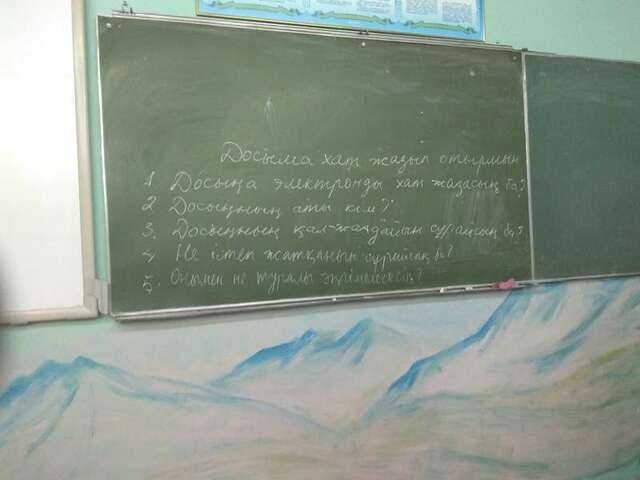 Досыма хат жазып отырмын
1. Досыңа электронды хат жазасың ба?
2. Досыңның аты кім?
3. Досыңның қал-жағдайын сұрайсың ба?
4. Не істеп жатқанын сұрайсың ба?
5. Онымен не туралы әңгімелесесің?